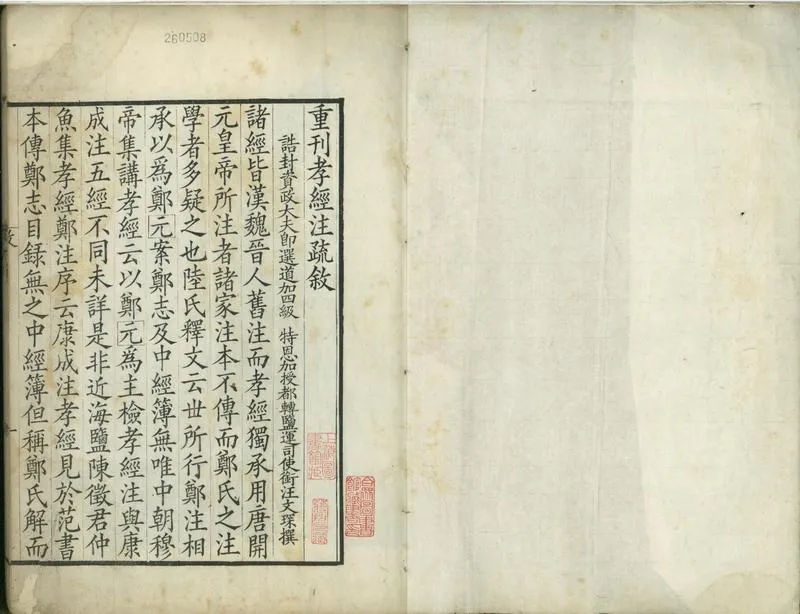 260508
重刊孝經注疏敘
誥封資政大夫卽選道加四級 特恩加授都轉鹽運司使銜汪文琛撰
諸經皆漢魏晉人舊注而孝經獨承用唐開
元皇帝所注者諸家注本不傳而鄭氏之注
學者多疑之也陸氏釋文云世所行鄭注相
承以爲鄭元案鄭志及中經簿無唯中朝穆
帝集講孝經云以鄭元爲主檢孝經注與康
成注五經不同未詳是非近海鹽陳徵君仲
魚集孝經鄭注序云康成注孝經見於范書
本傳鄭志目錄無之中經簿但稱鄭氏解而